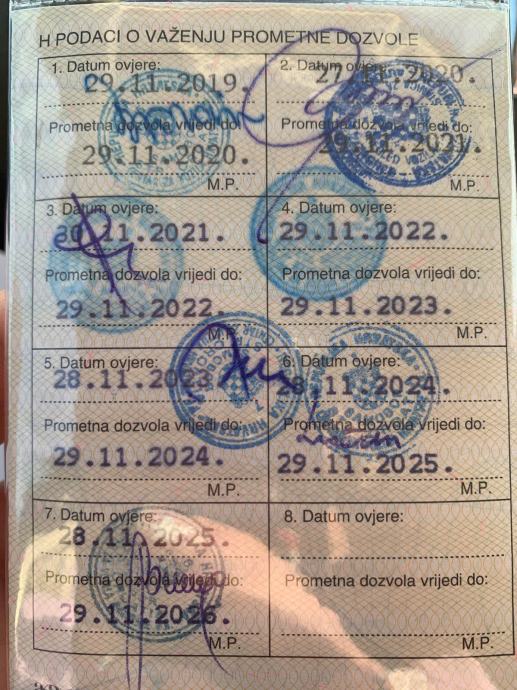 H PODACI O VAŽENJU PROMETNE DOZVOLE
1. Datum ovjere:
29.11.2019.
Prometna dozvola vrijedi do:
29.11.2020.
M.P.
2. Datum ovjere:
27.11.2020.
Prometna dozvola vrijedi do:
29.11.2021.
M.P.
3. Datum ovjere:
30.11.2021.
Prometna dozvola vrijedi do:
29.11.2022.
M.P.
4. Datum ovjere:
29.11.2022.
Prometna dozvola vrijedi do:
29.11.2023.
M.P.
5. Datum ovjere:
28.11.2023.
Prometna dozvola vrijedi do:
29.11.2024.
M.P.
6. Datum ovjere:
28.11.2024.
Prometna dozvola vrijedi do:
29.11.2025.
M.P.
7. Datum ovjere:
28.11.2025.
Prometna dozvola vrijedi do:
29.11.2026.
M.P.
8. Datum ovjere:
Prometna dozvola vrijedi do:
M.P.